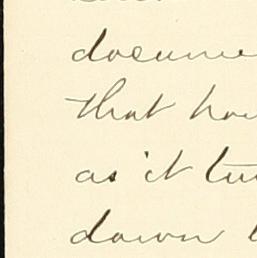 docume
that hou
as it tur
down t